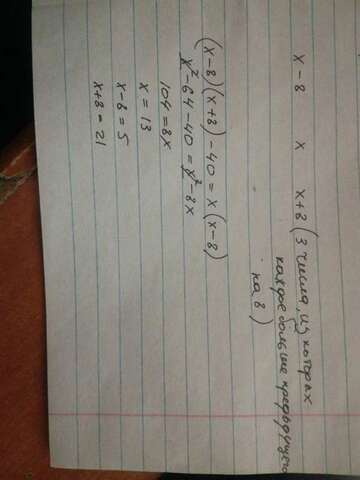 x-8 x x+8 (3 числа, из которых
каждое больше предыдущего
на 8)
(x-8)(x+8)-40=x(x-8)
x²-64-40=x²-8x
104=8x
x=13
x-8=5
x+8=21